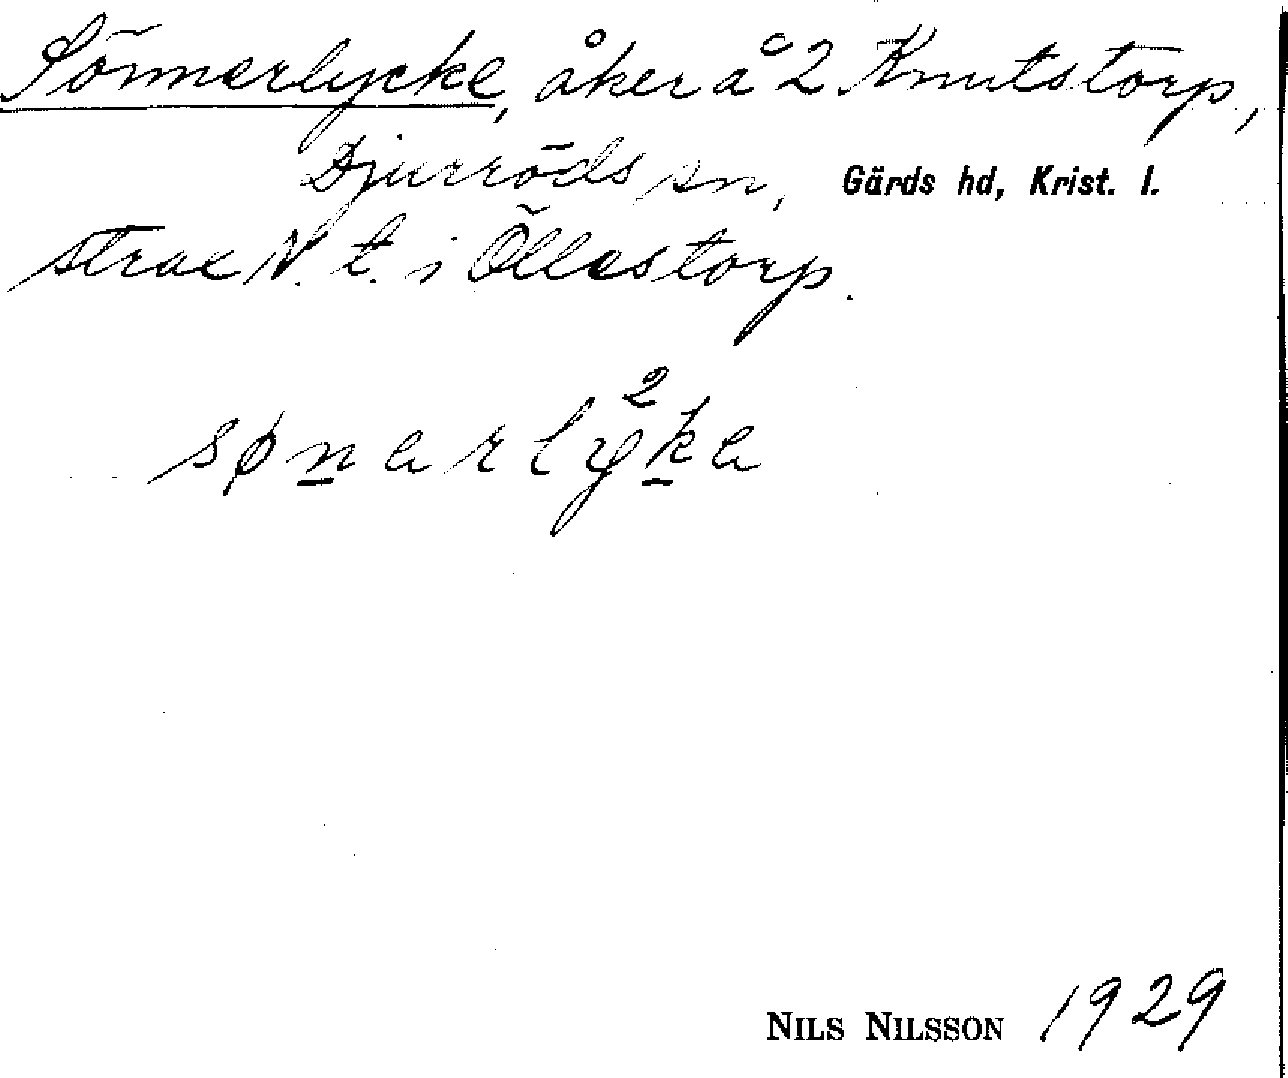 Sönnerlycke, åker å 2 Knutstorp,
Djurröds sn, Gärds hd, Krist. l.
strax N. t. i Öllestorp.
sønarly²ka
NILS NILSSON 1929